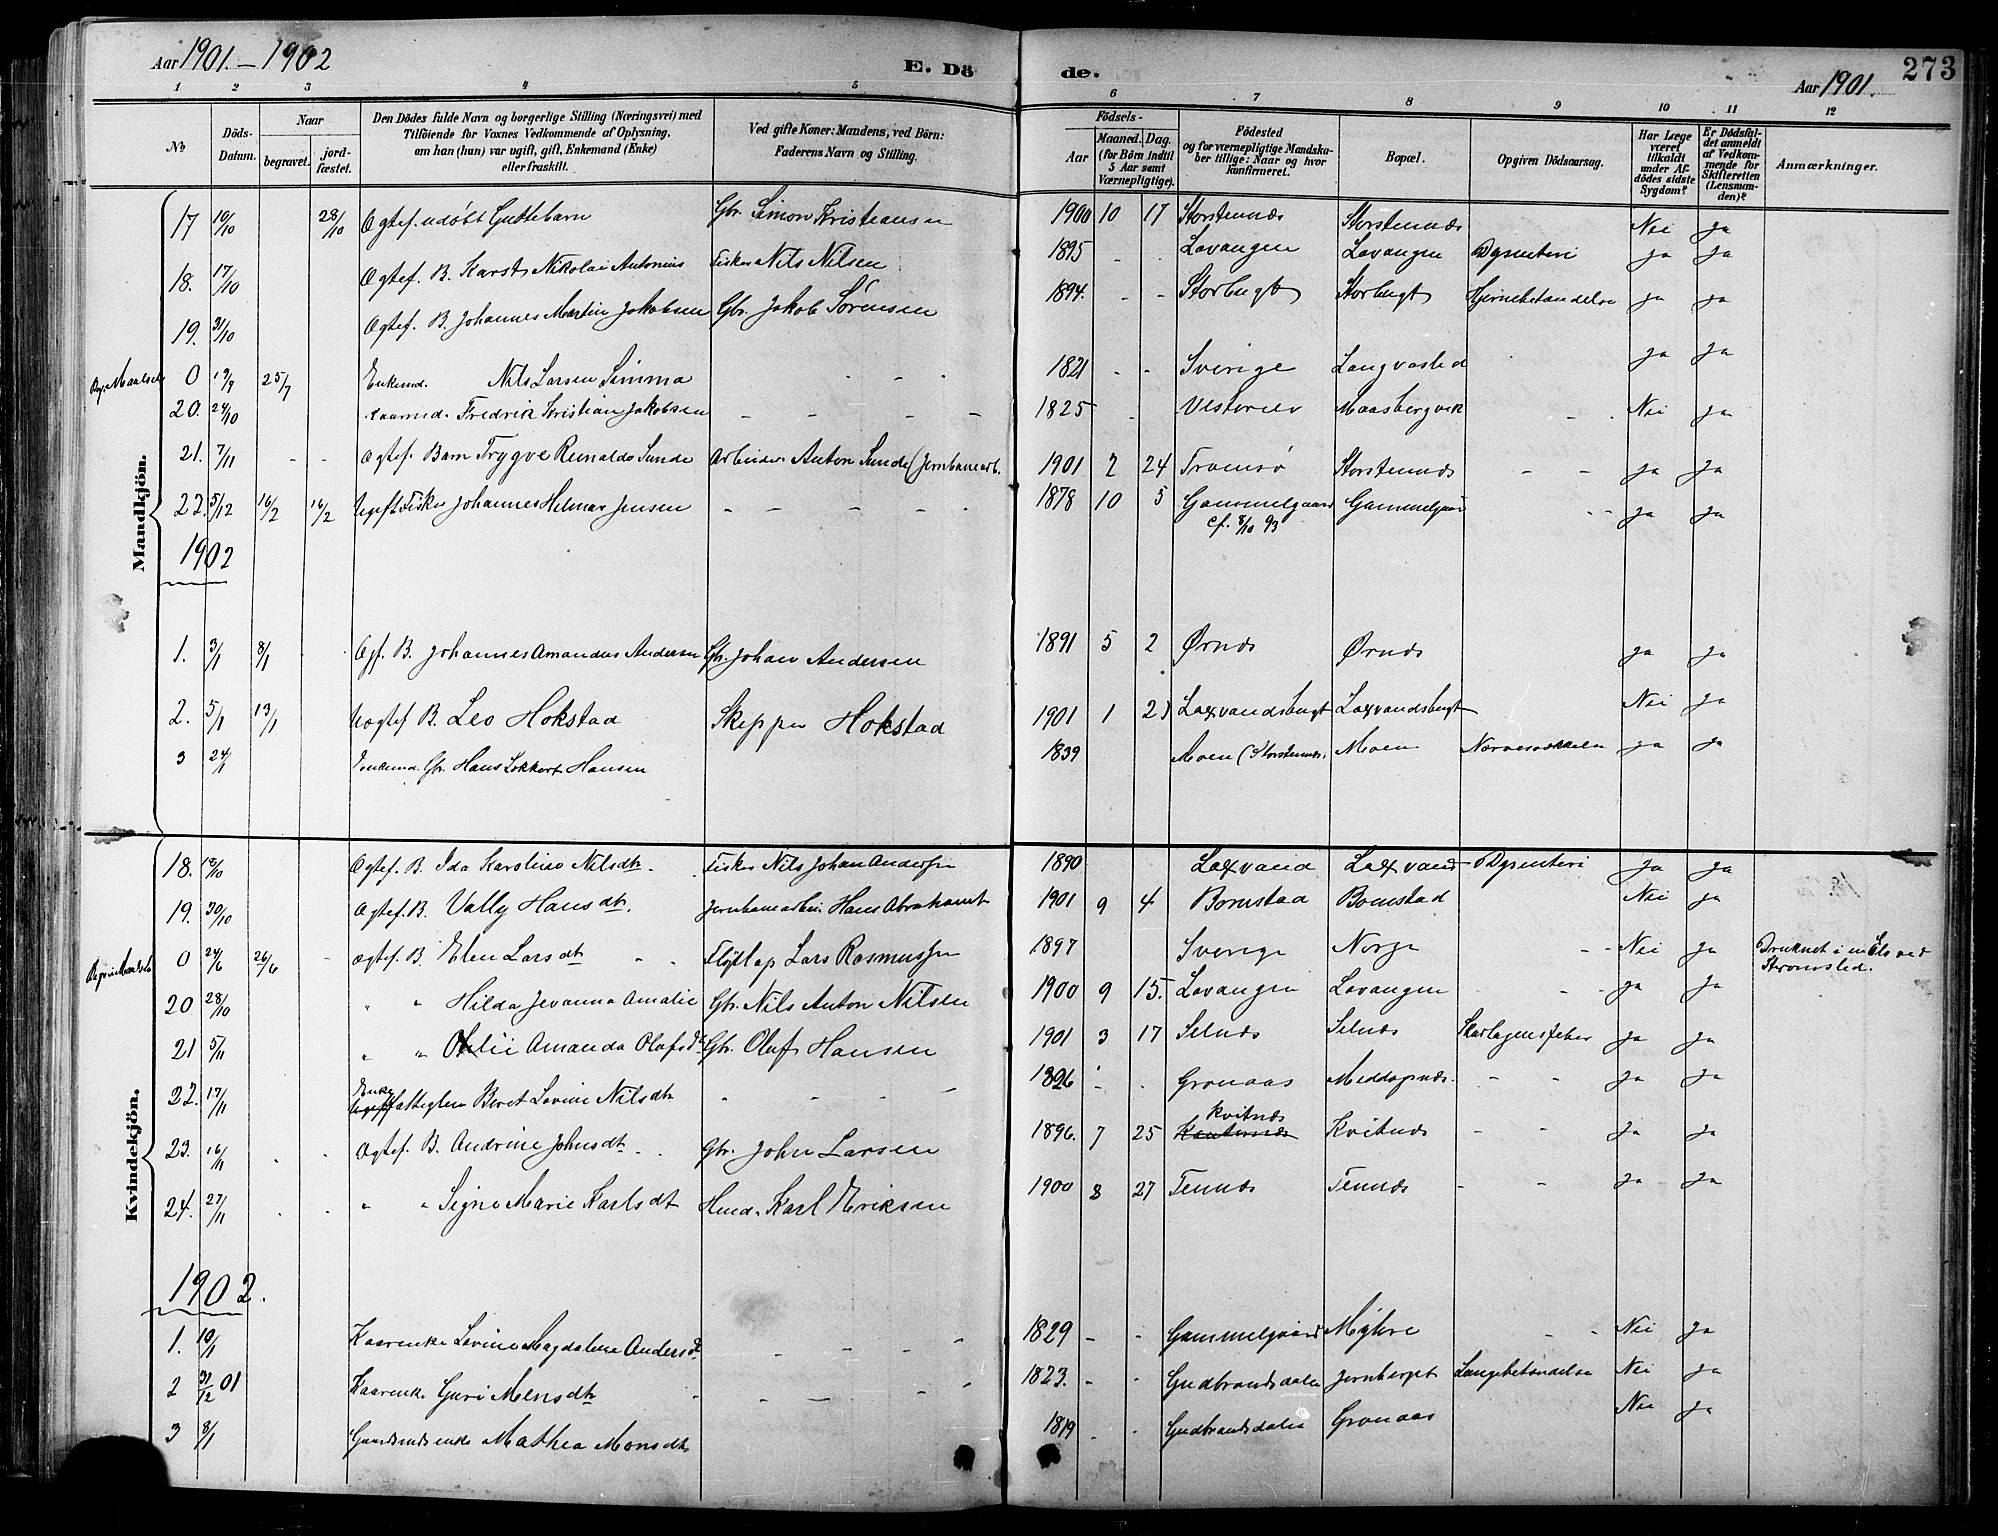 Aar 1901.-1902
E. Dö
de.
273
Aar 1901.
1 2 3 4 5 6 7 8 9 10 11 12
No
Döds-Datum.
Naar begravet. jordfæstet.
Den Dödes fulde Navn og borgerlige Stilling (Næringsvei) med Tilföiende for Voxnes Vedkommende af Oplysning. om han (hun) var ugift, gift, Enkemand (Enke) eller fraskilt.
Ved gifte Koner: Mandens, ved Börn: Faderens Navn og Stilling.
Födsels- Aar Maaned. Dag. (for Börn indtil 5 Aar samt Værnepligtige).
Födested og for værnepligtige Mandskaber tillige: Naar og hvor konfirmeret.
Bopæl.
Opgiven Dödsaarsag.
Har Læge været tilkaldt under Afdödes sidste Sygdom?
Er Dödsfaldet anmeldt af Vedkommende for Skifteretten (Lensmanden)?
Anmærkninger.
Mandkjön.
17 10/10 28/10 Ogtef. udøbt Guttebarn Gbr. Simon Kristiansen 1900 10 17 Storstennæs Storstennæs Nei Ja
18. 17/10 Ogtef. B. Karsts Nikolai Antonius Fisker Nils Nilsen 1895 - - Lavangen Lavangen Dysenteri Ja Ja
19. 31/10 Ogtef. B. Johannes Martin Jakobsen Gbr. Jakob Sørensen 1894. - - Storbugt Storbugt Hjernebetændelse Ja Ja
0 19/9 25/7 Enkemd. Nils Larsen Simma - - - 1821 - - Sverige Langvasled Ja Ja
20. 24/10 Kaarmd. Fredrik Kristian Jakobsen - - - - 1825 - Vesterelv Maasbergvik - - Nei Ja
21. 7/11 - - Ogtef. Barn Trygve Reinaldo Sunde Arbeider Anton Sunde (Jernbanearb. 1901 2 24 Tromsø Storstennæs - - Ja Ja
22. 5/12 16/2 16/2 Ugift Fisker Johannes Helmar Jensen - - - - 1878 10 5 Gammelgaard Gammelgaard - - Ja Ja
cf. 8/10 93
1902
1. 3/1 8/1 Ogf. B. Johannes Amandus Andersen Gbr. Johan Andersen 1891 5 2 Ørnæs Ørnæs Ja Ja
2. 5/1 13/1 Uogtef B. Leo Hokstad Skipper Hokstad 1901 1 Laxvandsbugt Laxvandsbugt Nei Ja
3 24/1 Enkemd. Gbr. Hans Lokkert Hansen 1839 Moen (Storstennæs. Moen Ja Ja
Kvindekjön.
18. 18/10 Ogtef. B. Ida Karoline Nilsdtr. Fisker Nils Johan Andersen 1890 Laxvand Laxvand Dysenteri Ja Ja
19. 30/10 Ogtef. B. Vally Hansdtr. Jernbanearbei. Hans Abrahams 1901 9 4 Bomstad Bomstad Nei Ja
0 24/6 26/6 - Ogtef. B. Elen Larsdtr - - Flytlap Lars Rasmussen 1897 Sverige Norge - - Nei Ja Druknet i en Elv ved
Strømslid.
20 28/10 " " Hilda Jevanna Amalie Gbr. Nils Anton Nilsen 1900 9 15. Lavangen Lavangen - - Ja Ja
21 5/11 " " Amanda Olafsdt Gbr. Olaf Hansen 1901 3 17 Selnæs Selnæs Skarlagensfeber Ja Ja
22. 17/11 Enke Ugift Fattiglem Beret Lovine Nilsdtr - - - - 1826 - - Gronaas Meddagsnæs. - - Ja Ja
23. 16/11 - - Ogtef. B. Andrine Johnsdt - - Gbr. John Larsen 1896. 7 25 Kvitnæs Kvitnæs - - Ja Ja
24. 27/11 - - " " Signe Marie Karlsdt Hmd. Karl Eriksen 1900 8 27 Tennæs Tennæs - - Ja Ja
1902.
1. 10/1 Kaarenke Lovine Magdalena Andersdt - - - - 1829 - - Gammelgaard - - Nei Ja
2 31/12 01 Kaarenke Guri Mensdtr - - - - 1823. - - Gudbrandsdalen Jernberget Lungebetændelse Nei Ja
3 8/1 Gaardmdsenke Mathea Monsdtr 1819 - - Gudbrandsdalen Gronaas Nei Ja